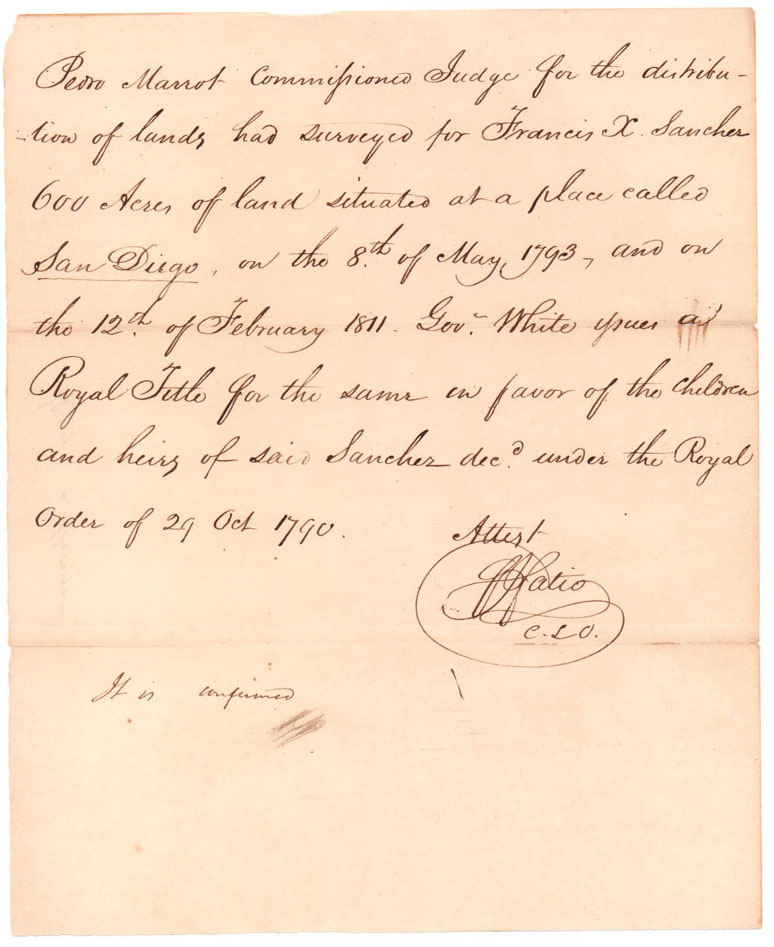 Pedro Marrot Commissioned Judge for the distribu-
-tion of lands had surveyed for Francis X. Sanchez
600 Acres of land situated at a place called
San Diego, on the 8th of May, 1793, and on
the 12th of February 1811. Govr White issues a
Royal Title for the same in favor of the children
and heirs of said Sanchez decd under the Royal
Order of 29 Oct 1790.
Attest
FJFatio
C.L.O.
It is confirmed